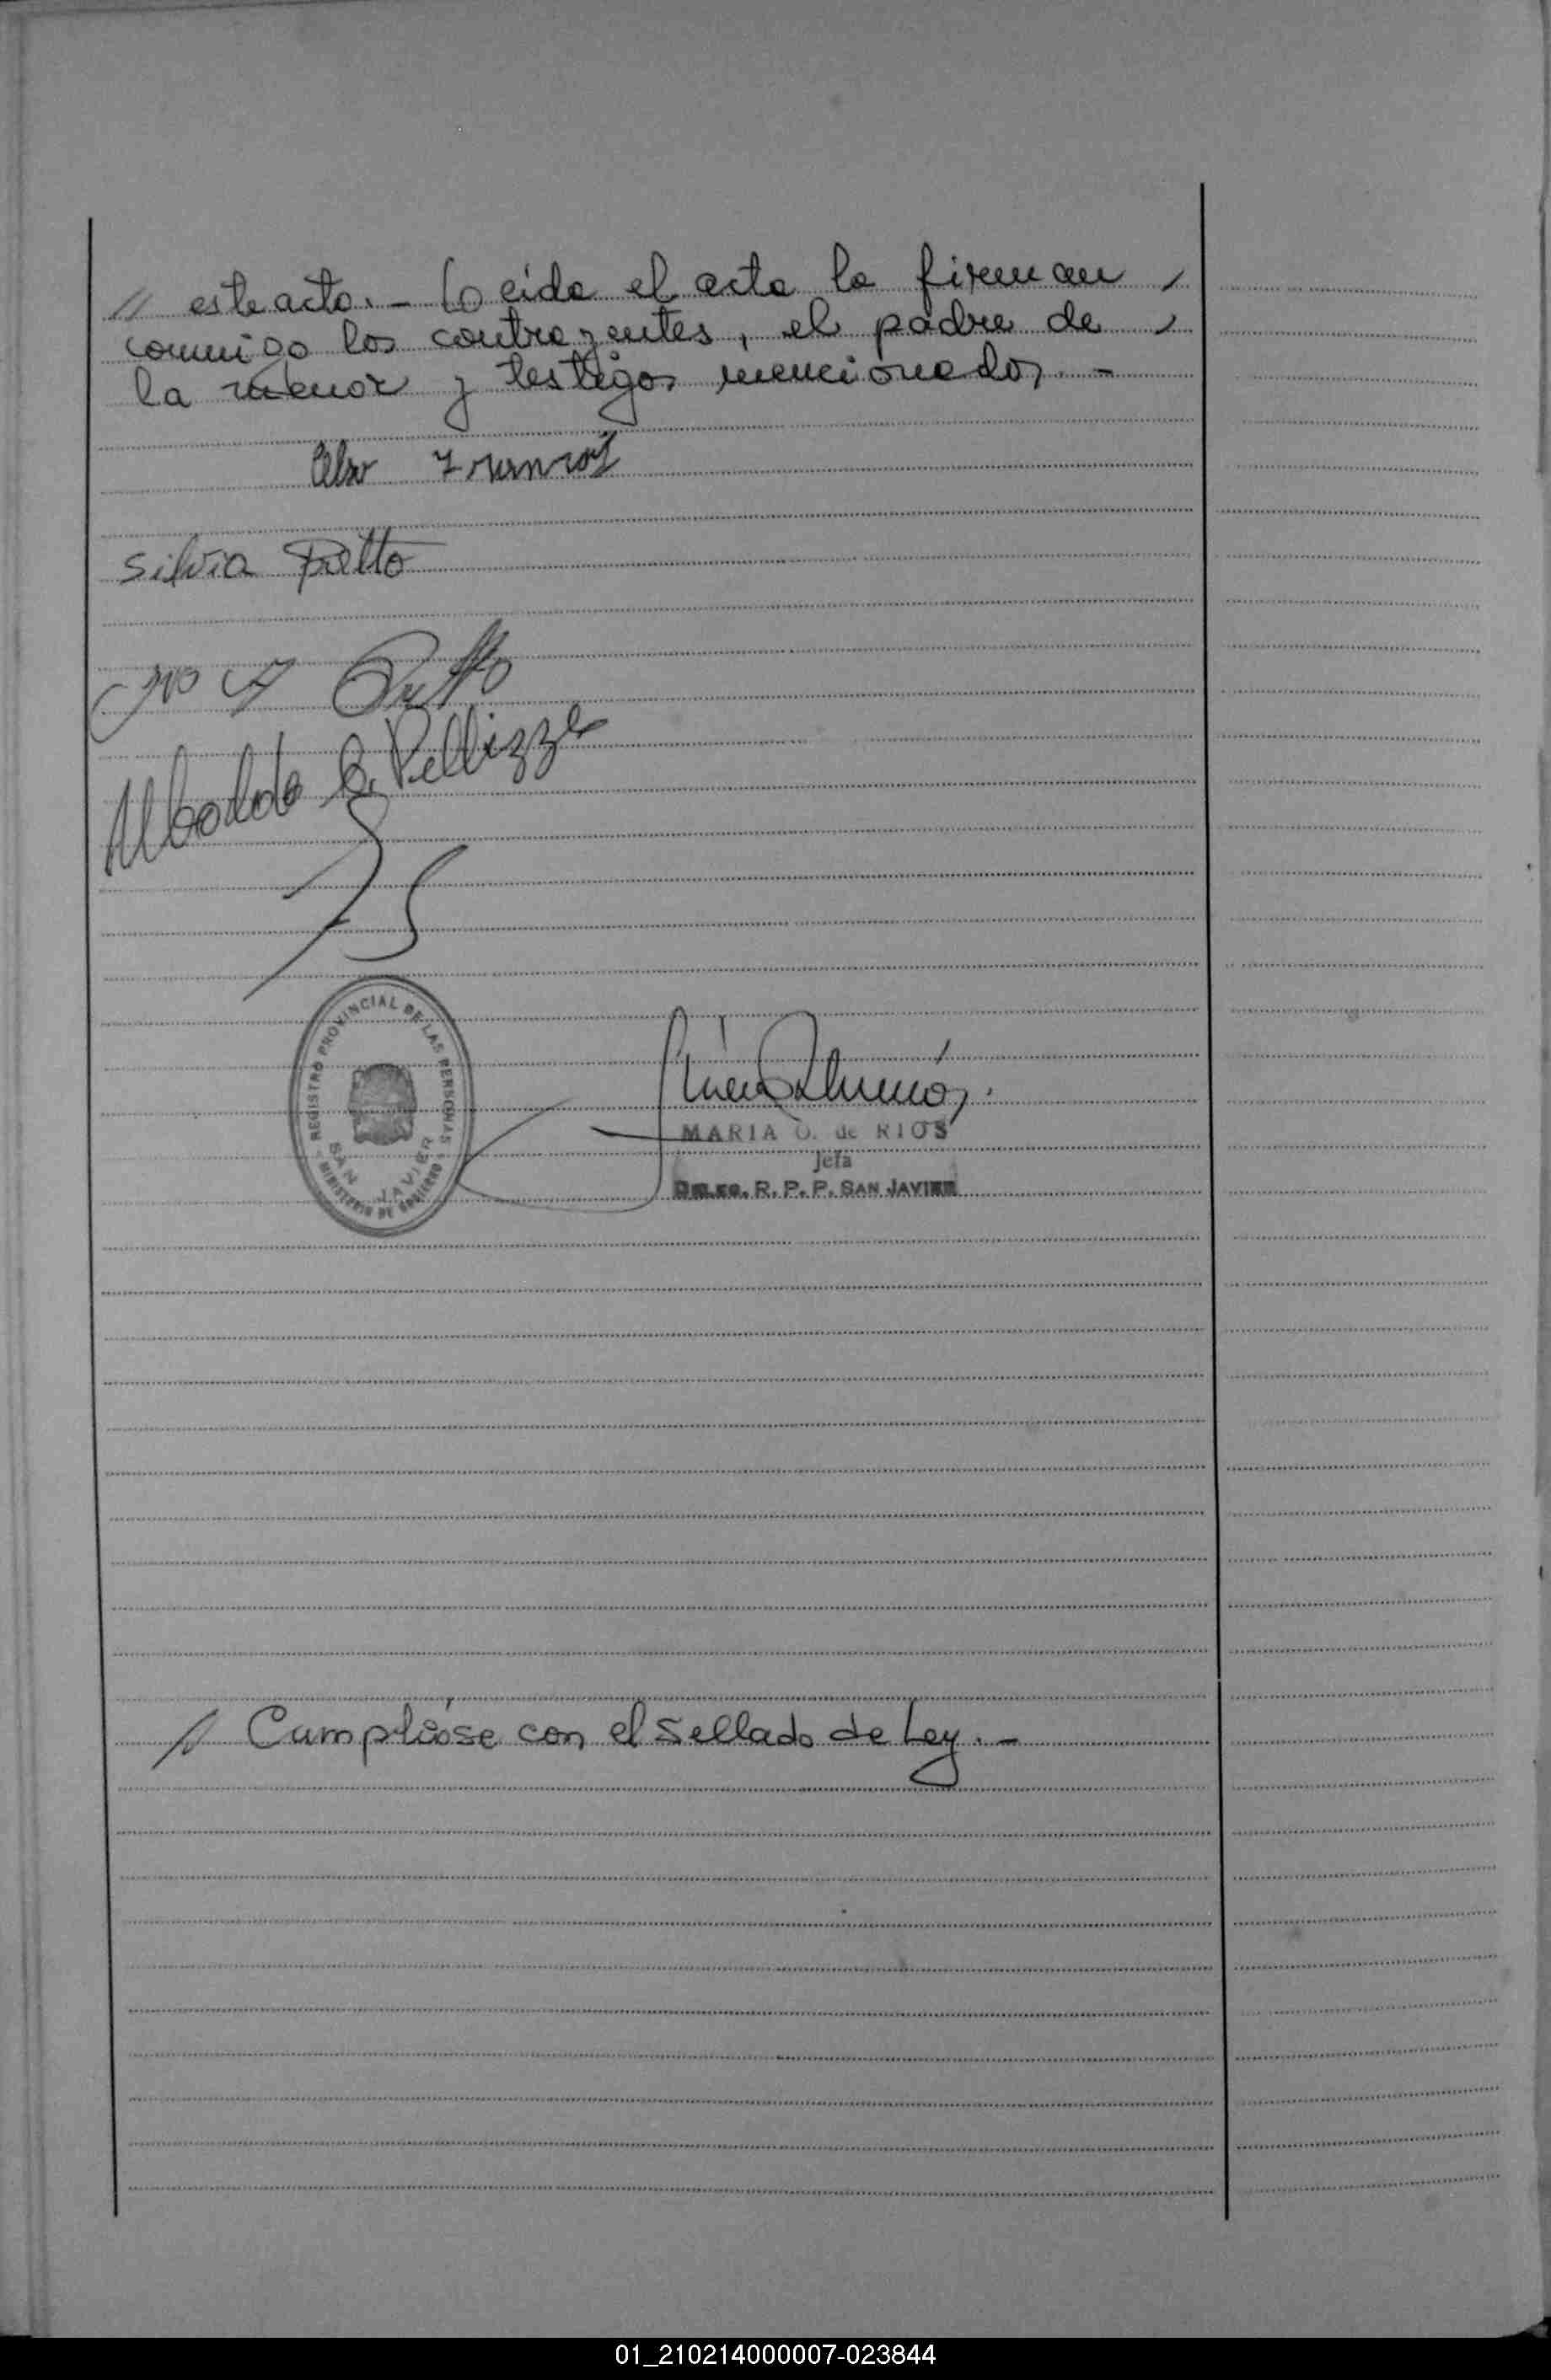 // este acto. - Leida el acta la firman ,
conmigo los contrayentes, el padre de ,
la menor y testigos mencionados. -
Silvia
Pellizza
REGISTRO PROVINCIAL DE LAS PERSONAS
SAN JAVIER
MINISTERIO DE GOBIERNO
MARIA O. de RIOS
Jefa
DELEG. R. P. P. SAN JAVIER
// Cumplióse con el sellado de Ley. -
01_210214000007-023844